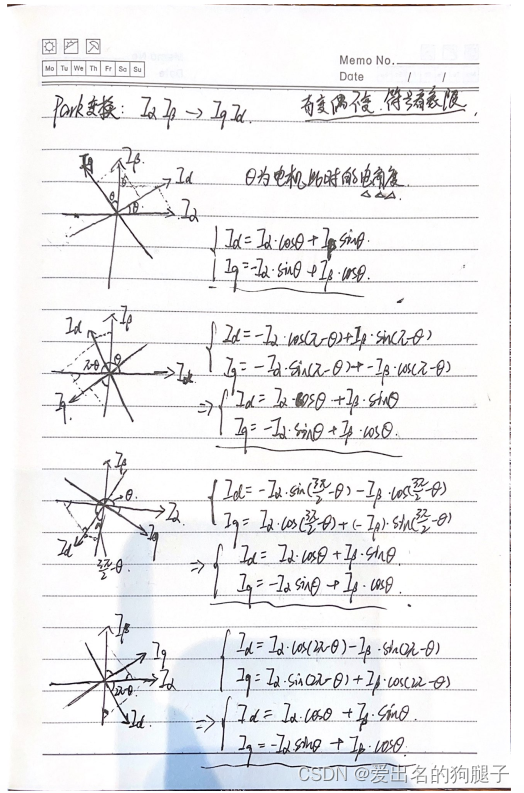 Memo No.
Mo Tu We Th Fr Sa Su
Date / /
Park变换: Iα Iβ → Iq Id
奇变偶不变, 符号看象限.
Iq Iβ Id θ θ θ Iα
θ为电机此时的电角度.
Id = Iα·cosθ + Iβ sinθ.
Iq = -Iα·sinθ + Iβ·cosθ.
Id Iβ π-θ θ Iα Iq
Id = -Iα·cos(π-θ) + Iβ·sin(π-θ)
Iq = -Iα·sin(π-θ) + -Iβ·cos(π-θ)
⇒ Id = Iα·cosθ + Iβ·sinθ
Iq = -Iα·sinθ + Iβ·cosθ.
Iβ θ. Iα Id Iq 3π/2-θ
Id = -Iα·sin(3π/2-θ) - Iβ·cos(3π/2-θ)
Iq = Iα·cos(3π/2-θ) + (-Iβ)·sin(3π/2-θ)
⇒ Id = Iα·cosθ + Iβ·sinθ.
Iq = -Iα sinθ + Iβ·cosθ.
Iβ Iq Iα 2π-θ Id
Id = Iα·cos(2π-θ) - Iβ·sin(2π-θ)
Iq = Iα·sin(2π-θ) + Iβ·cos(2π-θ)
⇒ Id = Iα·cosθ + Iβ·sinθ.
Iq = -Iα sinθ + Iβ·cosθ.
CSDN @爱出名的狗腿子